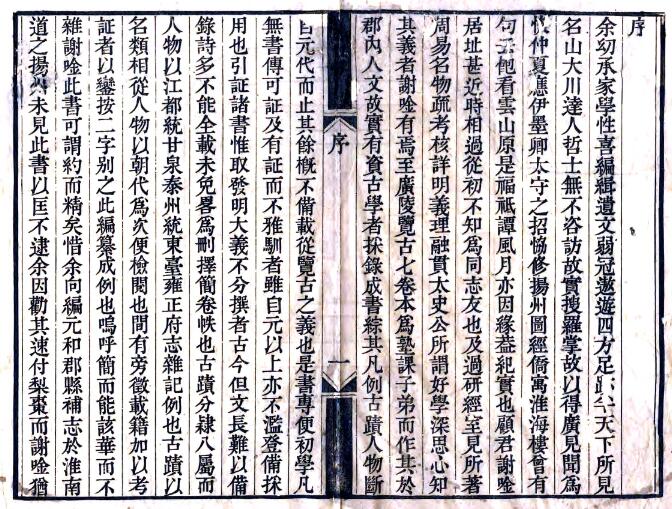 序
余幼承家學性喜編緝遺文弱冠遨遊四方足跡半天下所見
名山大川達人哲士無不咨訪故實搜羅掌故以得廣見聞爲
仲夏應伊墨卿太守之招恊修揚州圖經僑寓淮海樓曾有
句云飽看雲山原是福秪譚風月亦因緣葢紀實也顧君謝唫
居址甚近時相過從初不知爲同志友也及過研經室見所著
周易名物疏考核詳明義理融貫太史公所謂好學深思心知
其義者謝唫有焉至廣陵覽古七卷本爲塾課子弟而作其於
郡內人文故實有資古學者採錄成書綜其凡例古蹟人物斷
序
一
自元代而止其餘槪不備載從覽古之義也是書專便初學凡
無書傳可証及有証而不雅馴者雖自元以上亦不濫登備採
用也引証諸書惟取發明大義不分撰者古今但文長難以備
錄詩多不能全載未免畧爲刪擇簡卷帙也古蹟分隸八屬而
人物以江都統甘泉泰州統東臺雍正府志雜記例也古蹟以
名類相從人物以朝代爲次便檢閱也間有旁徵載籍加以考
証者以鑾按二字别之此編纂成例也嗚呼簡而能該華而不
雜謝唫此書可謂約而精矣惜余向編元和郡縣補志於淮南
道之揚州未見此書以匡不逮余因勸其速付棃棗而謝唫猶